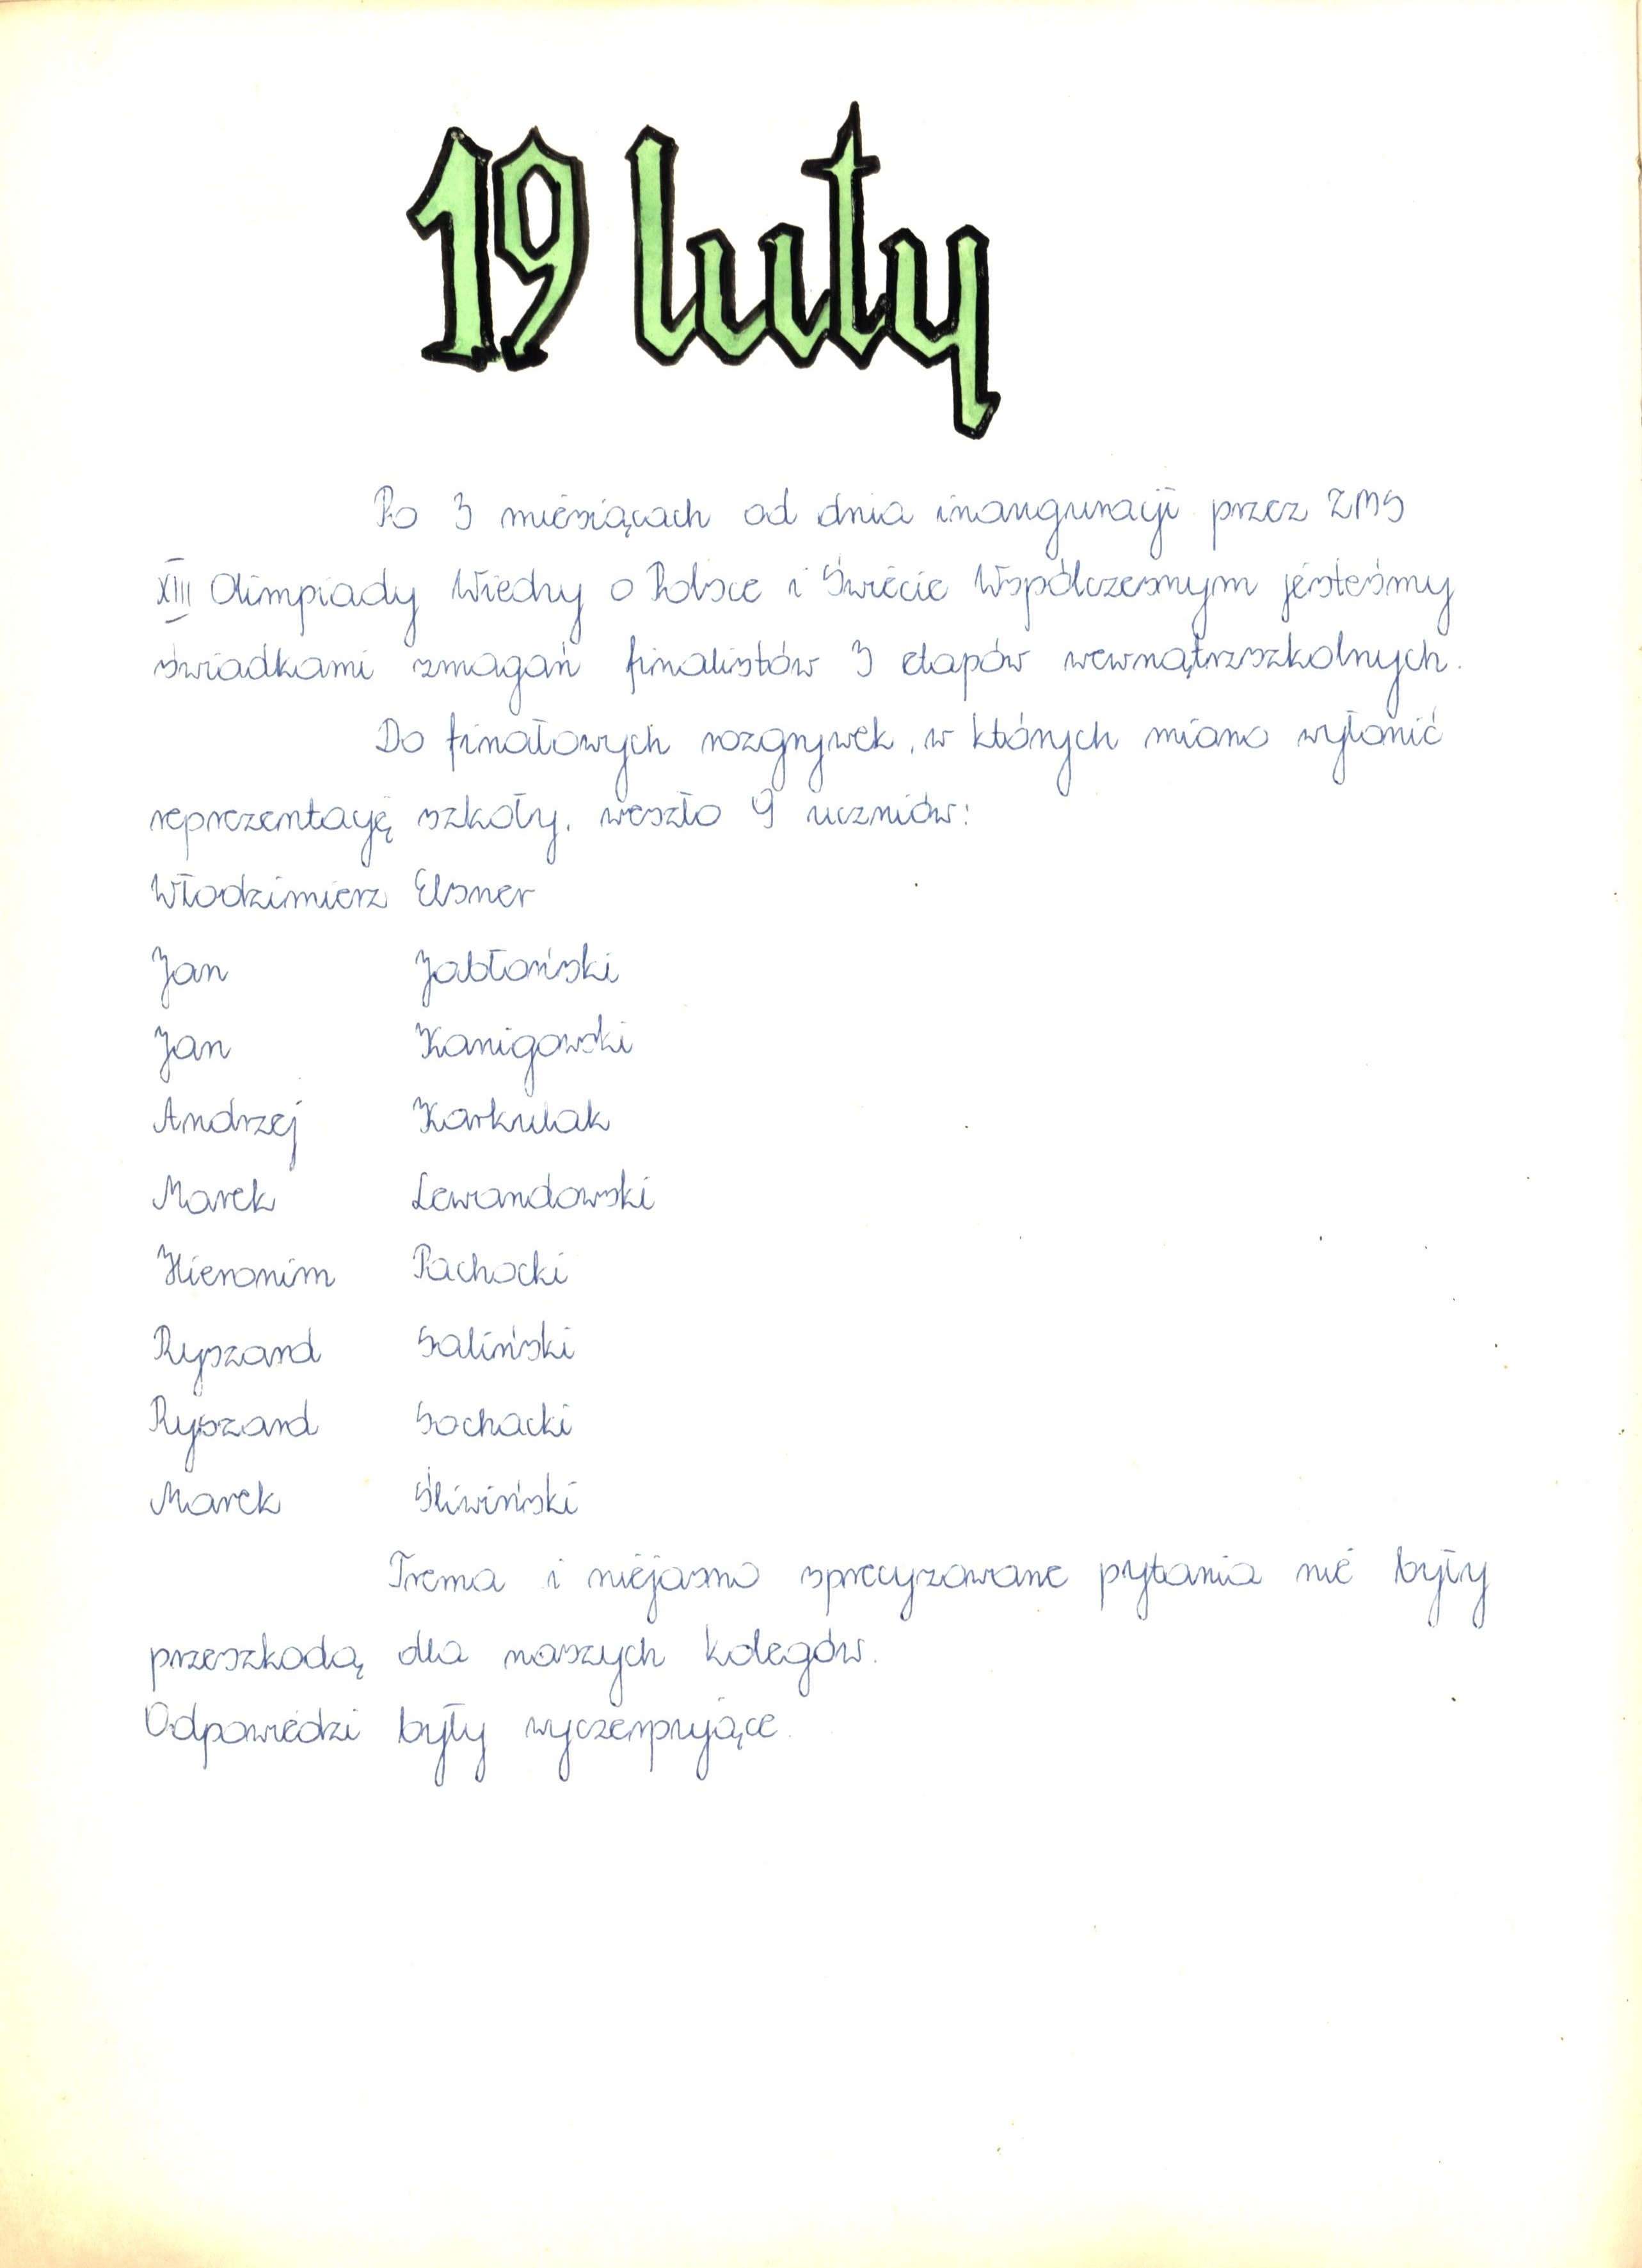 19 luty
Po 3 miesiącach od dnia inauguracji przez ZMS
XIII Olimpiady Wiedzy o Polsce i Świecie Współczesnym jesteśmy
świadkami zmagań finalistów 3 etapów wewnątrzszkolnych.
Do finałowych rozgrywek, w których miano wyłonić
reprezentację szkoły, weszło 9 uczniów:
Włodzimierz Elsner
Jan Jabłoński
Jan Kanigowski
Andrzej Karkulak
Marek Lewandowski
Hieronim Pachocki
Ryszard Saliński
Ryszard Sochacki
Marek Śliwiński
Trema i niejasno sprecyzowane pytania nie były
przeszkodą dla naszych kolegów.
Odpowiedzi były wyczerpujące.